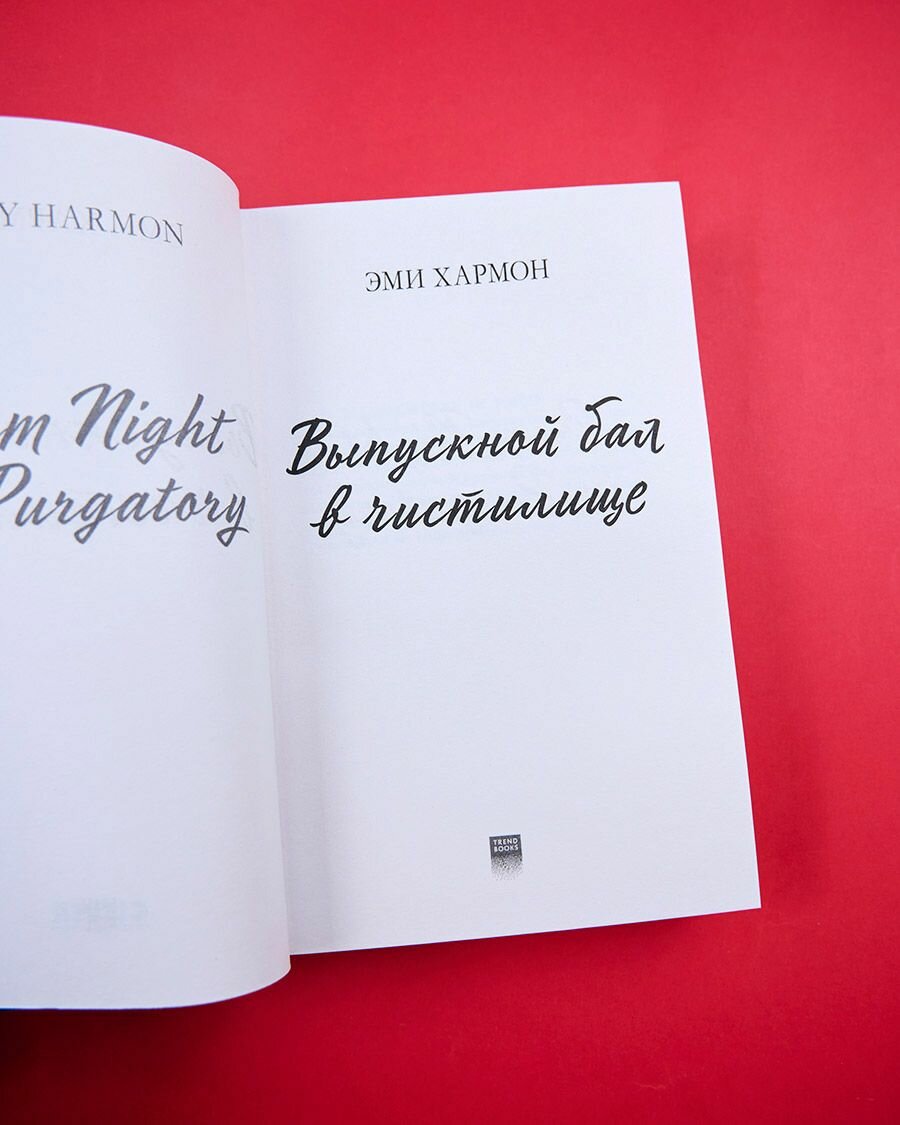 Y HARMON
m Night
Purgatory
ЭМИ ХАРМОН
Выпускной бал
в чистилище
TREND
BOOKS